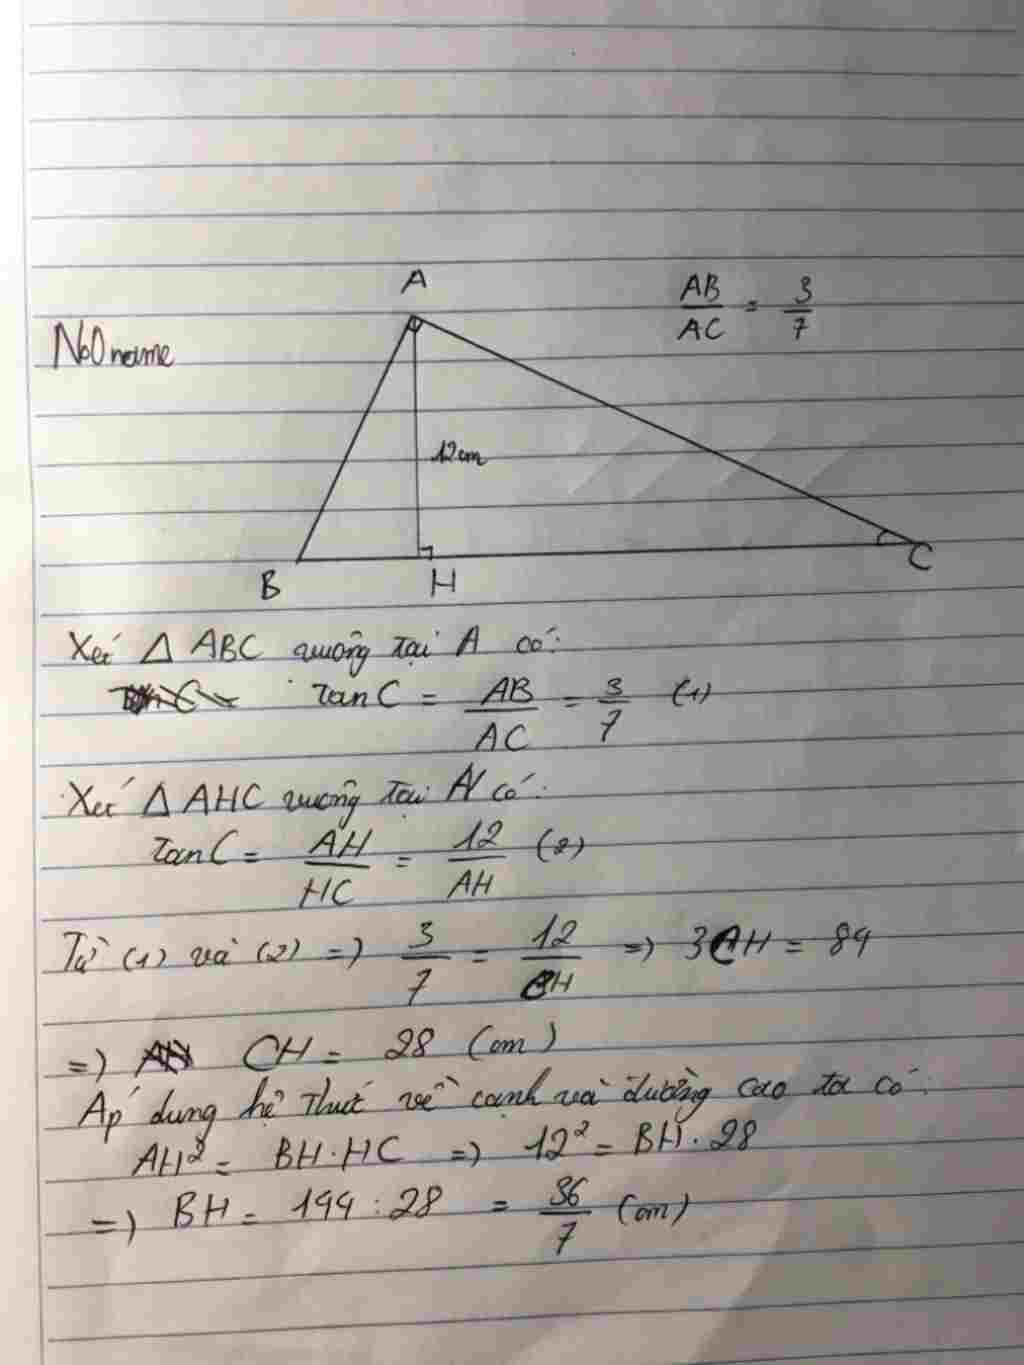 A
AB/AC = 3/7
NoOname
12cm
B H C
Xét Δ ABC vuông tại A có:
tan C = AB/AC = 3/7 (1)
Xét Δ AHC vuông tại H có:
tan C = AH/HC = 12/AH (2)
Từ (1) và (2) => 3/7 = 12/CH => 3CH = 84
=> CH = 28 (cm)
Áp dụng hệ thức về cạnh và đường cao ta có:
AH² = BH.HC => 12² = BH.28
=> BH = 144 : 28 = 36/7 (cm)